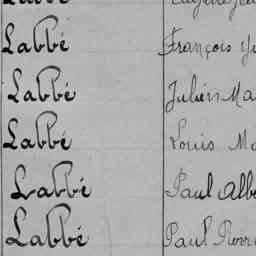 Labbé François
Labbé Julien Ma
Labbé Louis Ma
Labbé Paul Albe
Labbé Paul Pierre